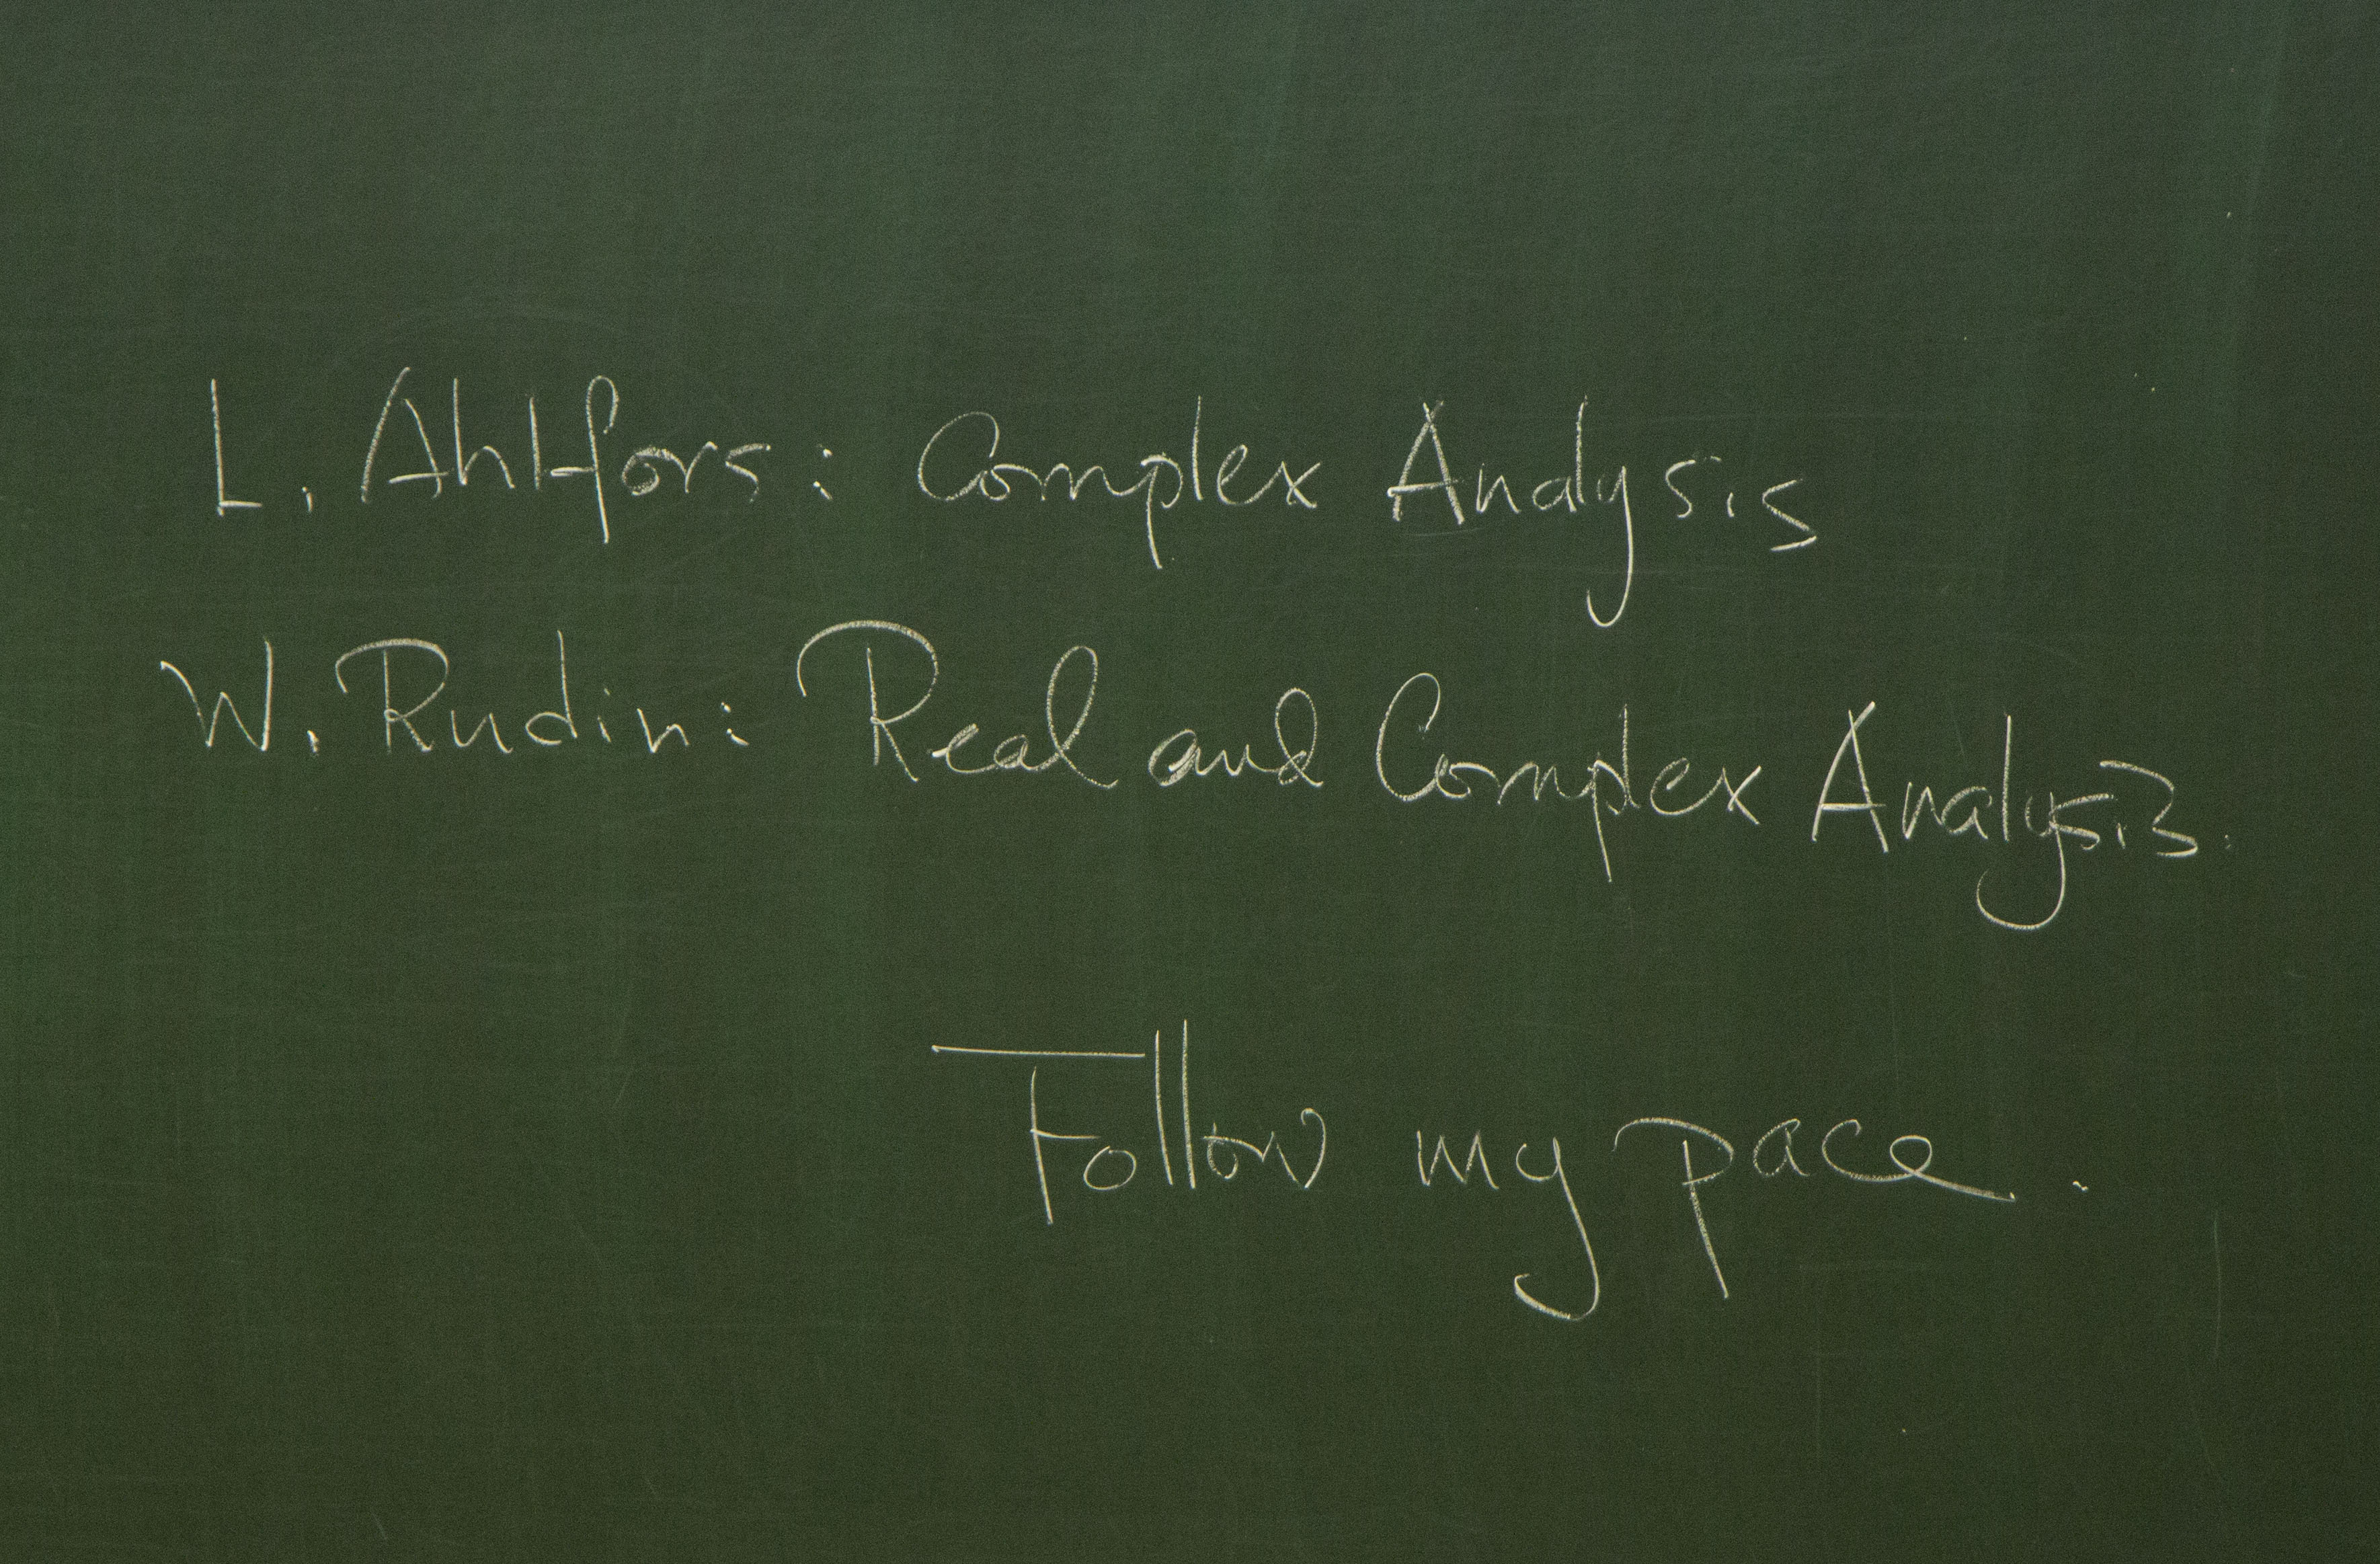 L. Ahlfors: Complex Analysis
W. Rudin: Real and Complex Analysis.
Follow my pace.